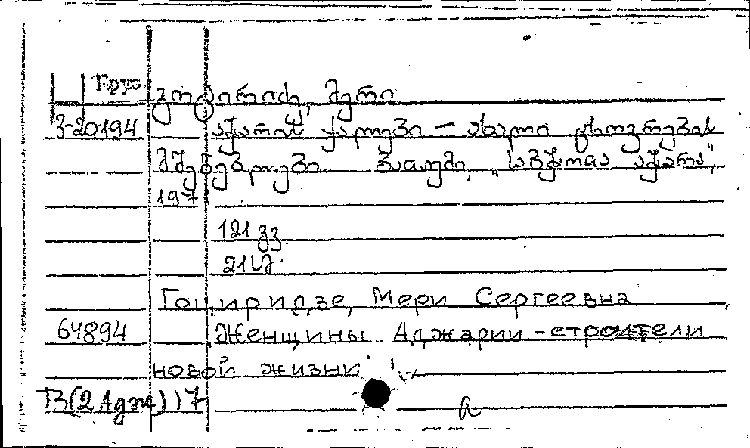 Груз
გოგირიძე, მერი
3-20194 აჭარის ქალები — ახალი ცხოვრების
მშენებლები ბათუმი, „საბჭოთა აჭარა",
197
121 გვ
21 ს
Гогиридзе, Мери Сергеевна
64894 Женщины Аджарии - строители
новой жизни
а